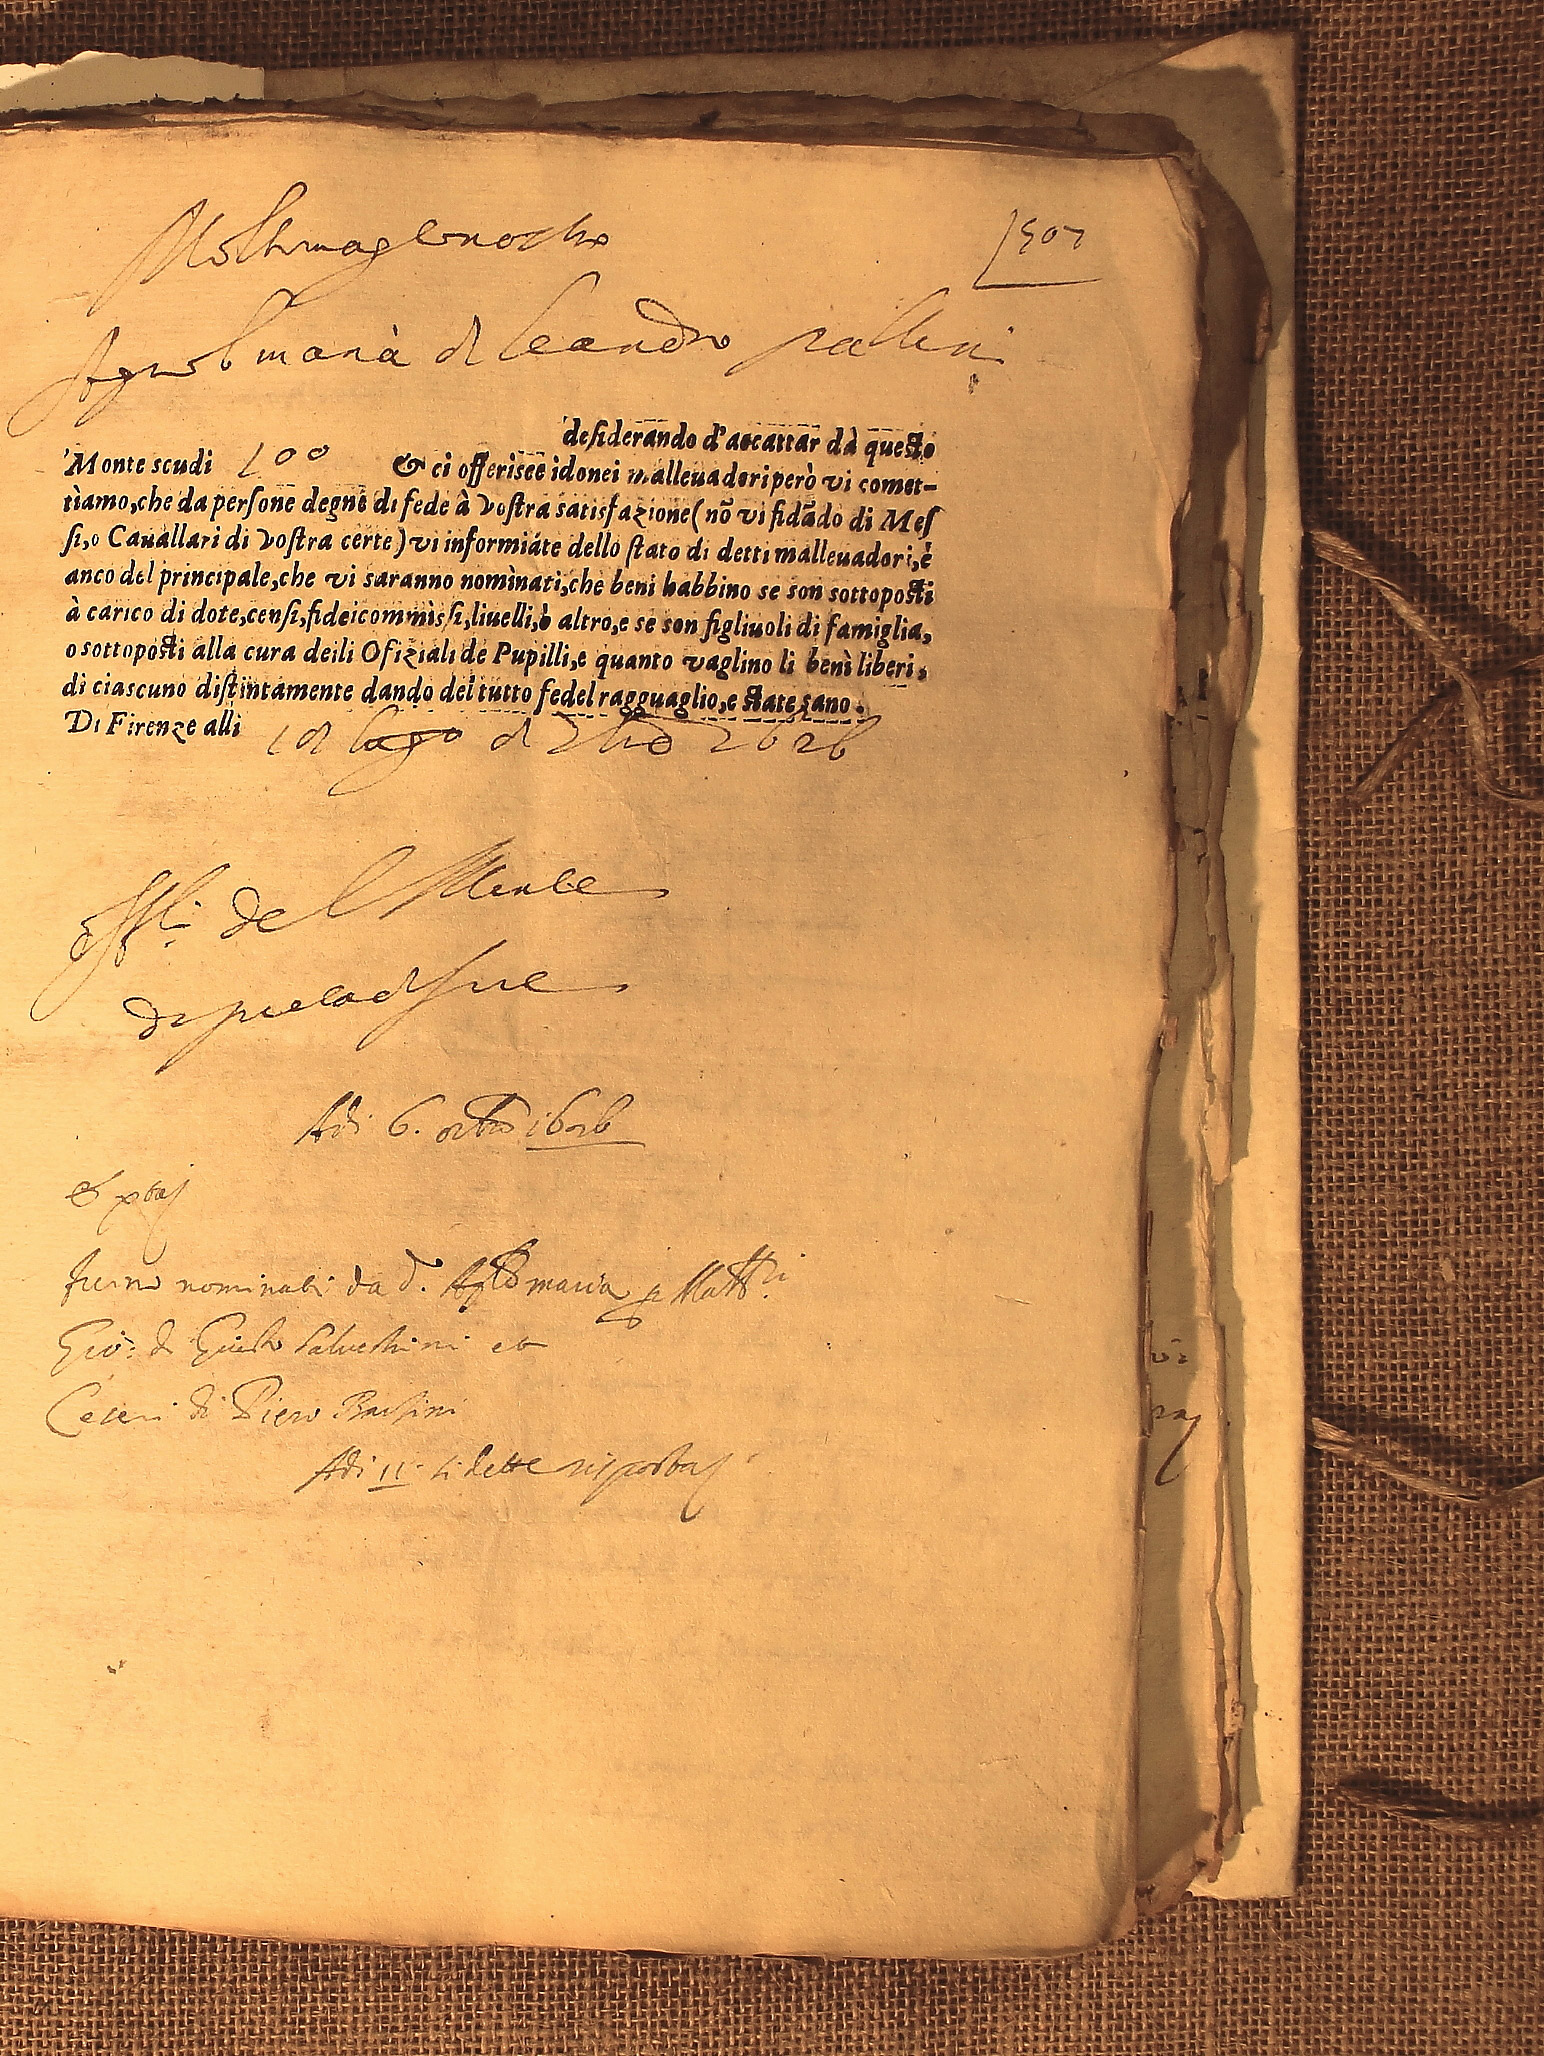 Molto mag.co nostro
1507
Agnol maria di leandro pallini
desiderando d'accattar dà questo
Monte scudi 100 & ci offerisce idonei malleuadori però vi comet-
tiamo,che da persone degne di fede à vostra satisfazione (nō vi fidādo di Mes
si,o Cauallari di vostra corte) vi informiate dello stato di detti malleuadori,è
anco del principale,che vi saranno nominati,che beni habbino se son sottoposti
à carico di dote,censi,fideicommissi,liuelli,ò altro,e se son figliuoli di famiglia,
o sottoposti alla cura delli Ofiziali de Pupilli,e quanto vaglino li beni liberi,
di ciascuno distintamente dando del tutto fedel ragguaglio,e state sano.
Di Firenze alli
del Monte
di pieta di
Adi 6. ottb 1626
furno nominati da d. maria p Matt.
Gio: di Giusto Saluestrini et
Ceseri di Piero
Adi 11. dette